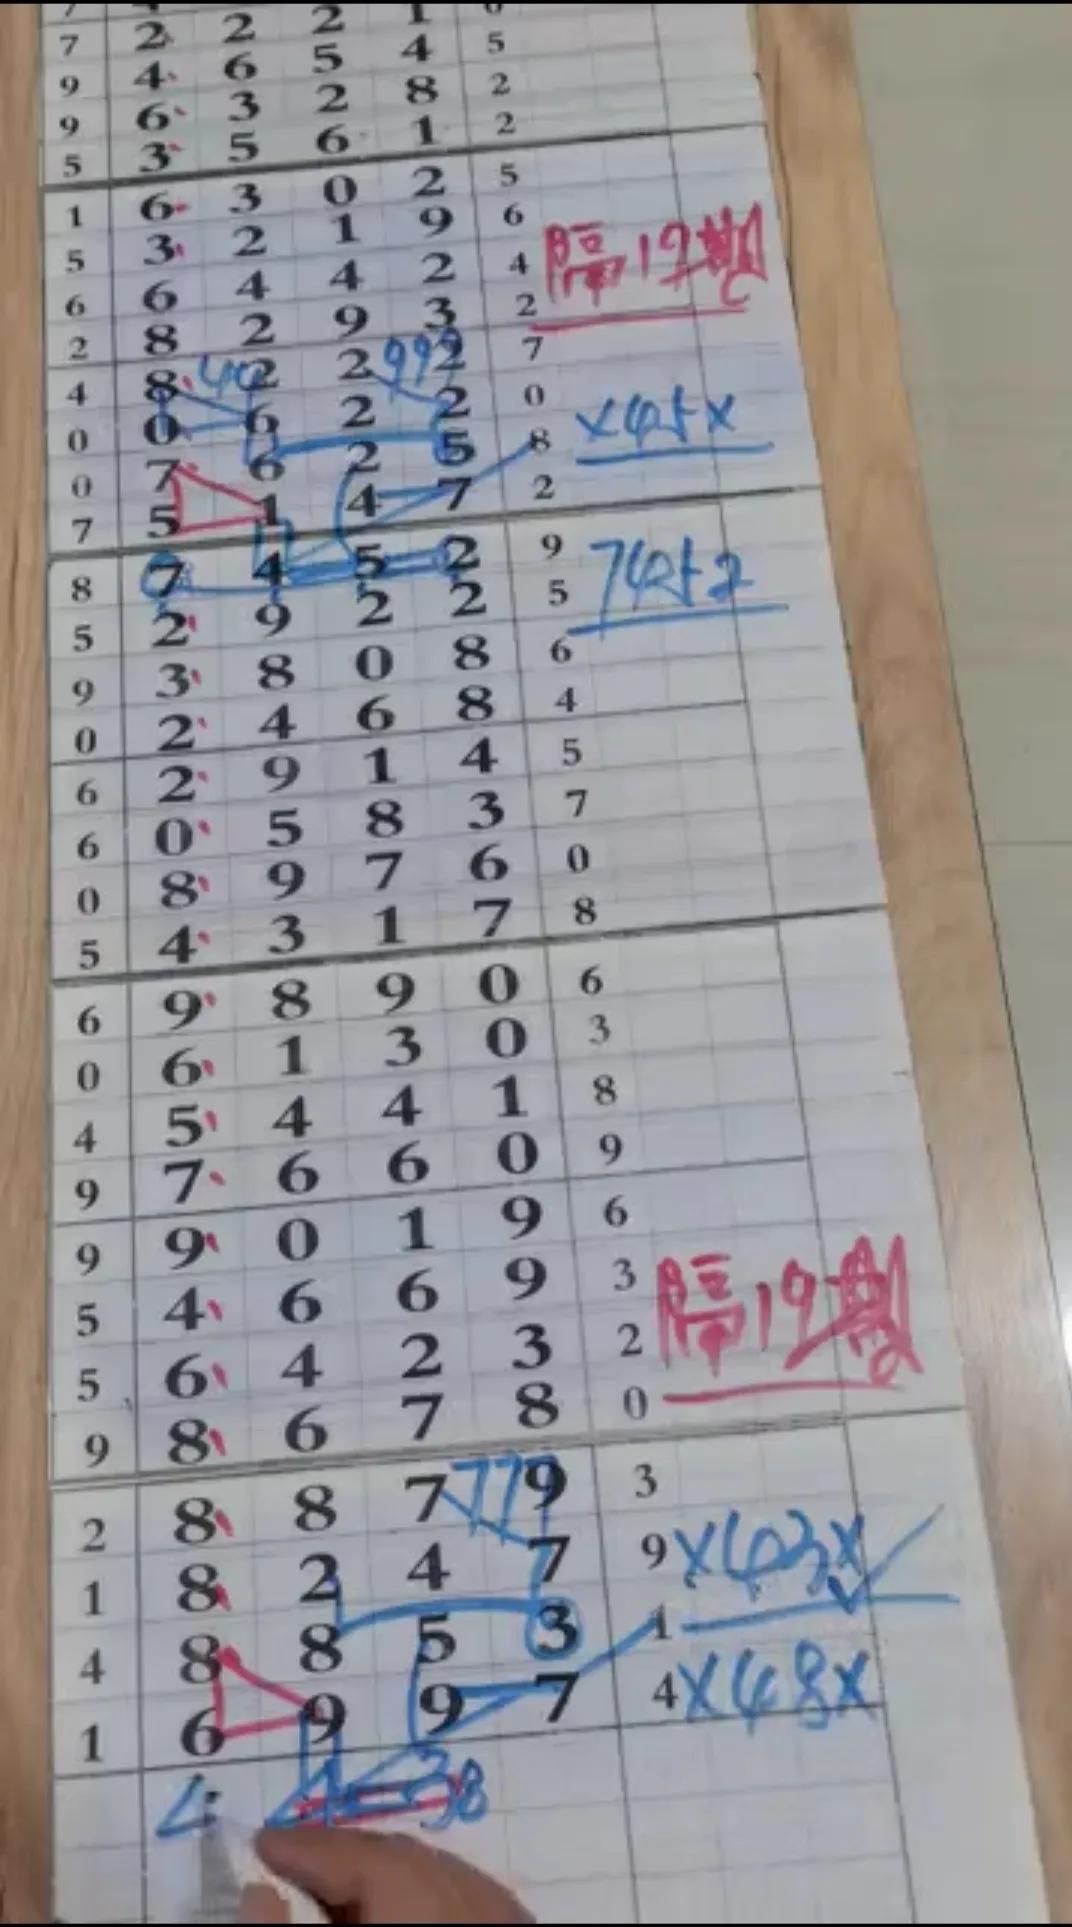 7 2 2 2 1
9 4 6 5 4 5
9 6 3 2 8 2
5 3 5 6 1 2
1 6 3 0 2 5
5 3 2 1 9 6
6 6 4 4 2 4 隔19期
2 8 2 9 3 2
4 8 2 2 2 7
0 0 6 2 2 0
0 7 6 2 5 8 X45X
7 5 1 4 7 2
8 7 4 5 2 9 7452
5 2 9 2 2 5
9 3 8 0 8 6
0 2 4 6 8 4
6 2 9 1 4 5
6 0 5 8 3 7
0 8 9 7 6 0
5 4 3 1 7 8
6 9 8 9 0 6
0 6 1 3 0 3
4 5 4 4 1 8
9 7 6 6 0 9
9 9 0 1 9 6
5 4 6 6 9 3
5 6 4 2 3 2 隔19期
9 8 6 7 8 0
777
2 8 8 7 9 3
1 8 2 4 7 9 X43X
4 8 8 5 3 1
1 6 9 9 7 4 X48X